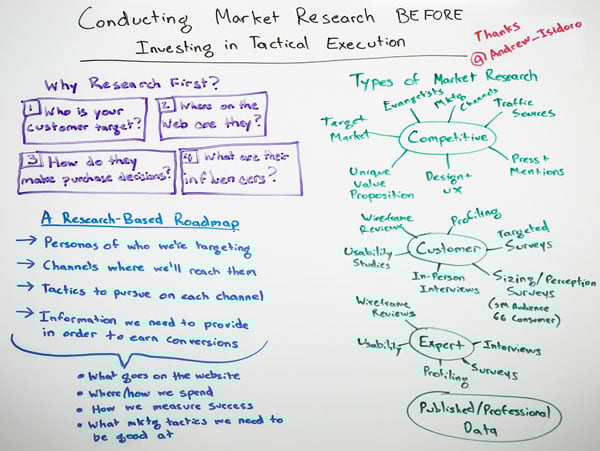 Conducting Market Research BEFORE
Investing in Tactical Execution
Thanks
@Andrew_Isidoro
Why Research First?
1 Who is your
customer target?
2 Where on the
web are they?
3 How do they
make purchase decisions?
4 What are their
influencers?
A Research-Based Roadmap
→ Personas of who we're targeting
→ Channels where we'll reach them
→ Tactics to pursue on each channel
→ Information we need to provide
in order to earn conversions
• What goes on the website
• Where/how we spend
• How we measure success
• What mktg tactics we need to
be good at
Types of Market Research
Competitive
Target
Market
Evangelists
Mktg
Channels
Traffic
Sources
Unique
Value
Proposition
Design +
UX
Press +
Mentions
Customer
Wireframe
Reviews
Profiling
Targeted
Surveys
Usability
Studies
In-Person
Interviews
Sizing/Perception
Surveys
(SM Audience
GG Consumer)
Expert
Wireframe
Reviews
Usability
Profiling
Surveys
Interviews
Published/Professional
Data